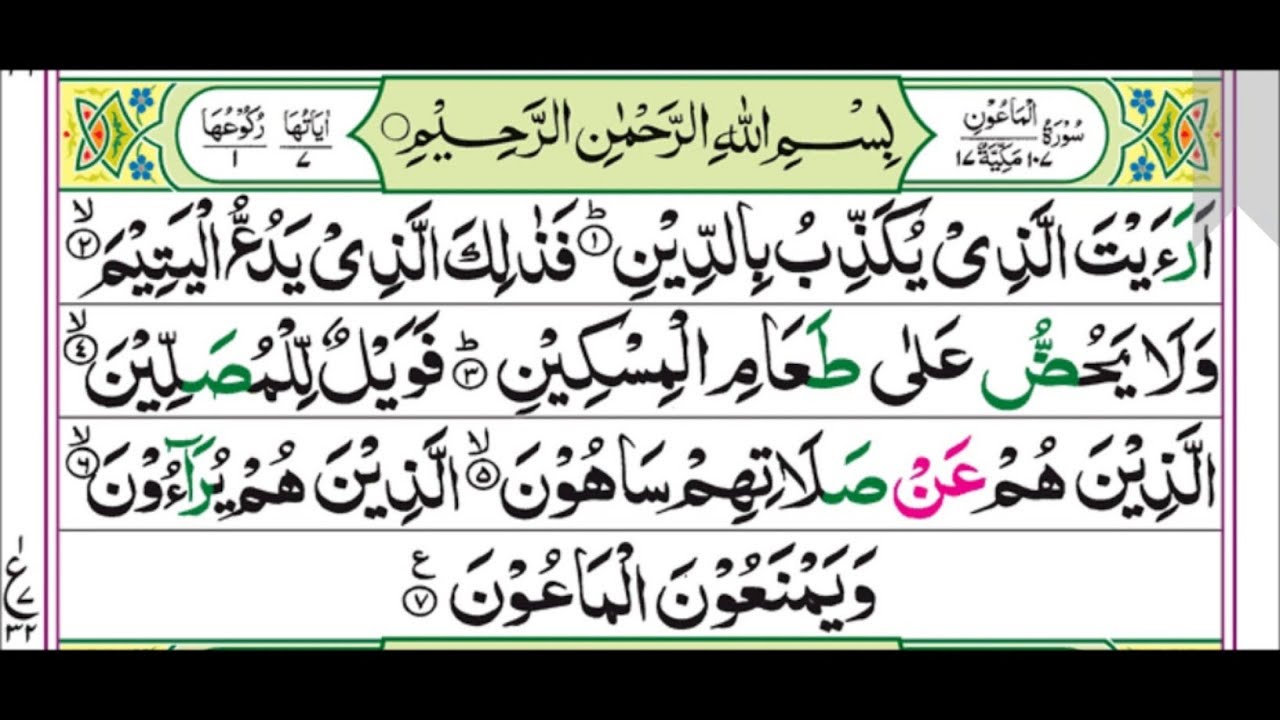 سُوْرَةُ الْمَاعُوْنِ
١٠٧ مَكِّيَّةٌ ١٧
بِسْمِ اللّٰهِ الرَّحْمٰنِ الرَّحِيْمِ
اٰيَاتُهَا ٧ رُكُوْعُهَا ١
اَرَءَيْتَ الَّذِىْ يُكَذِّبُ بِالدِّيْنِ ؕ ١ فَذٰلِكَ الَّذِىْ يَدُعُّ الْيَتِيْمَ ۙ ٢
وَلَا يَحُضُّ عَلٰى طَعَامِ الْمِسْكِيْنِ ؕ ٣ فَوَيْلٌ لِّلْمُصَلِّيْنَ ۙ ٤
الَّذِيْنَ هُمْ عَنْ صَلَاتِهِمْ سَاهُوْنَ ۙ ٥ الَّذِيْنَ هُمْ يُرَآءُوْنَ ۙ ٦
وَيَمْنَعُوْنَ الْمَاعُوْنَ ٧ ع
١
ع ٧
٣٢